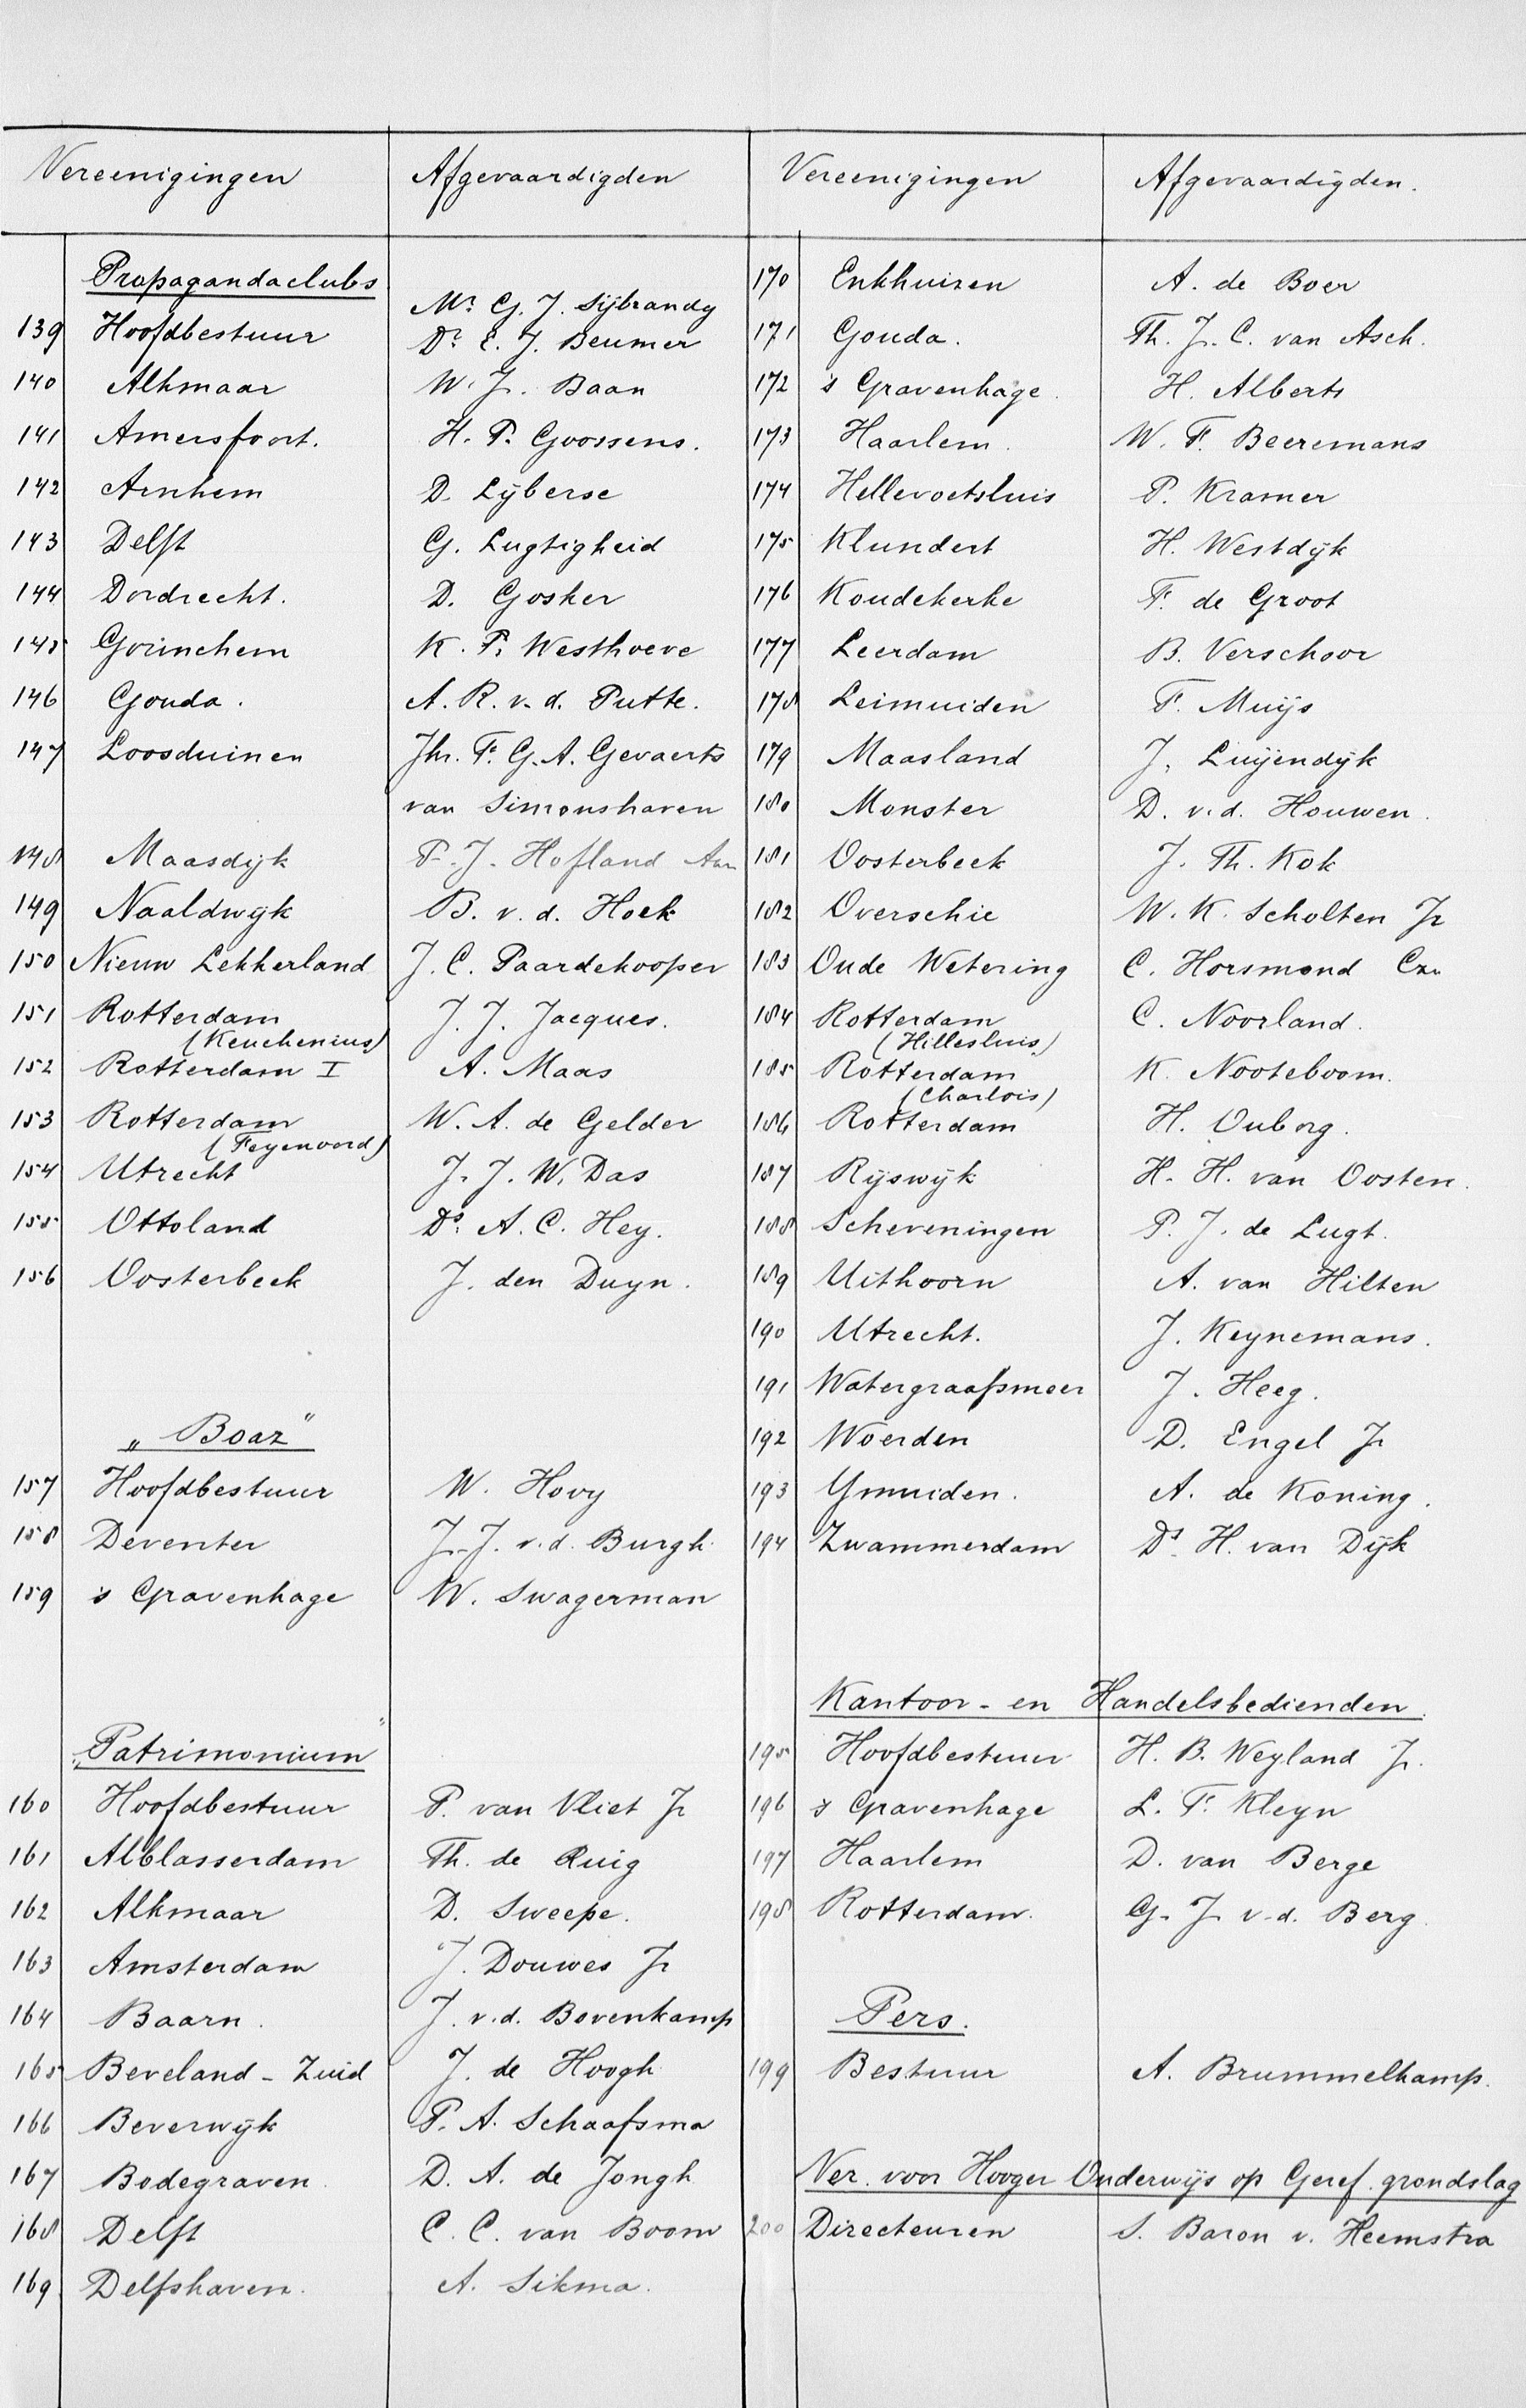 Vereenigingen Afgevaardigden
Propagandaclubs
Mr G. J. Sijbrandy
139 Hoofdbestuur Dr E. J. Beumer
140 Alkmaar W. J. Baan
141 Amersfoort. H. P. Goossens.
142 Arnhem D. Lijberse
143 Delft G. Lugtigheid
144 Dordrecht. D. Gosker
145 Gorinchem K. P. Westhoeve
146 Gouda. A. R. v. d. Putte.
147 Loosduinen Jhr. F. G. A. Gevaerts
van Simonshaven
148 Maasdijk P. J. Hofland Azn
149 Naaldwijk B. v. d. Hoek
150 Nieuw Lekkerland J. C. Paardekooper
151 Rotterdam J. J. Jacques.
(Keuchenius)
152 Rotterdam I A. Maas
153 Rotterdam W. A. de Gelder
(Feyenoord)
154 Utrecht J. J. W. Das
155 Ottoland Ds. A. C. Hey.
156 Oosterbeek J. den Duyn.
„Boaz"
157 Hoofdbestuur W. Hovy
158 Deventer J. J. v. d. Burgh
159 's Gravenhage W. Swagerman
„Patrimonium"
160 Hoofdbestuur P. van Vliet Jr
161 Alblasserdam Th. de Ruig
162 Alkmaar D. Sweepe.
163 Amsterdam J. Douwes Jr
164 Baarn. J. v. d. Bovenkamp
165 Beveland - Zuid J. de Hoogh
166 Beverwijk P. A. Schaafsma
167 Bodegraven D. A. de Jongh
168 Delft C. C. van Boom
169 Delfshaven. A. Sikma.
Vereenigingen Afgevaardigden.
170 Enkhuizen A. de Boer
171 Gouda. Th. J. C. van Asch.
172 's Gravenhage. H. Alberts
173 Haarlem. W. F. Beeremans
174 Hellevoetsluis P. Kramer
175 Klundert H. Westdijk
176 Koudekerke F. de Groot
177 Leerdam B. Verschoor
178 Leimuiden F. Muijs
179 Maasland J. Luijendijk
180 Monster D. v. d. Houwen.
181 Oosterbeek J. Th. Kok
182 Overschie W. K. Scholten Jr
183 Oude Wetering C. Horsmond Czn
184 Rotterdam C. Noorland.
(Hillesluis)
185 Rotterdam K. Nooteboom.
(Charlois)
186 Rotterdam H. Ouborg.
187 Rijswijk H. H. van Oosten.
188 Scheveningen P. J. de Lugt.
189 Uithoorn A. van Hilten
190 Utrecht. J. Keynemans.
191 Watergraafsmeer J. Heeg.
192 Woerden D. Engel Jr
193 Ymuiden. A. de Koning.
194 Zwammerdam Ds. H. van Dijk
Kantoor- en Handelsbedienden.
195 Hoofdbestuur H. B. Weyland Jr.
196 's Gravenhage L. F. Kleyn
197 Haarlem D. van Berge
198 Rotterdam. G. J. v. d. Berg
Pers.
199 Bestuur A. Brummelkamp.
Ver. voor Hooger Onderwijs op Geref. grondslag
200 Directeuren S. Baron v. Heemstra